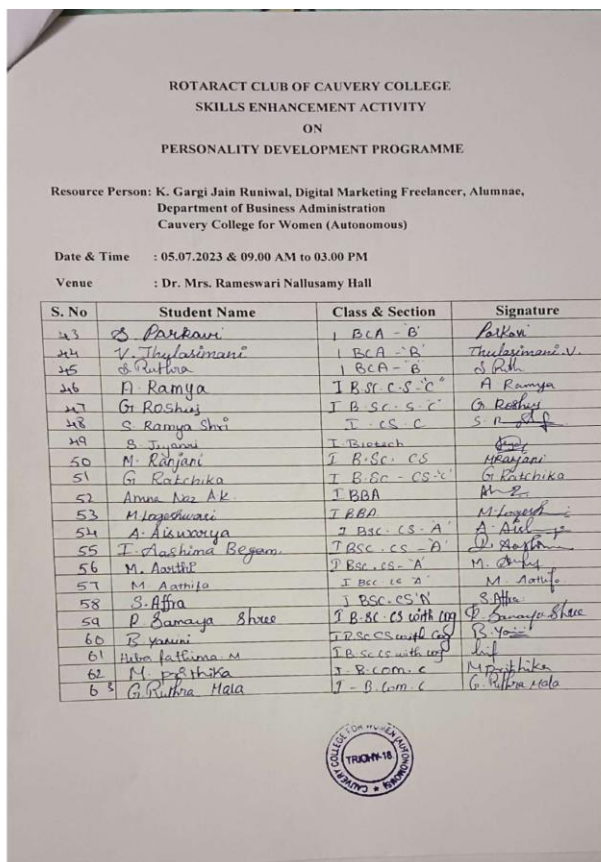 ROTARACT CLUB OF CAUVERY COLLEGE
SKILLS ENHANCEMENT ACTIVITY
ON
PERSONALITY DEVELOPMENT PROGRAMME
Resource Person: K. Gargi Jain Runiwal, Digital Marketing Freelancer, Alumnae,
Department of Business Administration
Cauvery College for Women (Autonomous)
Date & Time : 05.07.2023 & 09.00 AM to 03.00 PM
Venue : Dr. Mrs. Rameswari Nallusamy Hall
S. No Student Name Class & Section Signature
43 S Parkavi I BCA - 'B' Parkavi
44 V. Thulasimani I BCA - 'B' Thulasimani.V.
45 S Ruthra I BCA - 'B' S Ruth
46 A. Ramya I B.Sc. C.S - 'C' A Ramya
47 G Roshuj I B.Sc. S. 'C' G Roshuj
48 S. Ramya Shri I . CS . C S. R
49 S. I. Biotech
50 M. Ranjani I B.Sc. CS M Ranjani
51 G Ratchika I B.Sc - CS-'C' G Ratchika
52 Amna Naz A.K. I BBA
53 M. Logeshwari I BBA. M. Logesh
54 A. Aiswarya I BSC. CS - A' A. Aish
55 I. Aashima Begam. I BSC. CS - 'A'
56 M. Aarthi I BSC. CS - 'A' M.
57 M. Aathifa I BSC CS 'A' M. Aathifa
58 S. Affra I BSC. CS 'A' S. Affra
59 P. Sanaya Shree I B.SC. CS with cog P. Sanaya Shree
60 B Yamini I B.Sc CS with Cog B. Ya
61 Hiba fathima M I B.Sc CS with cog
62 M. prithika I - B.com. C M prithika
63 G. Ruthra Mala I - B.com. C G. Ruthra Mala
CAUVERY COLLEGE FOR WOMEN (AUTONOMOUS)
TRICHY-18